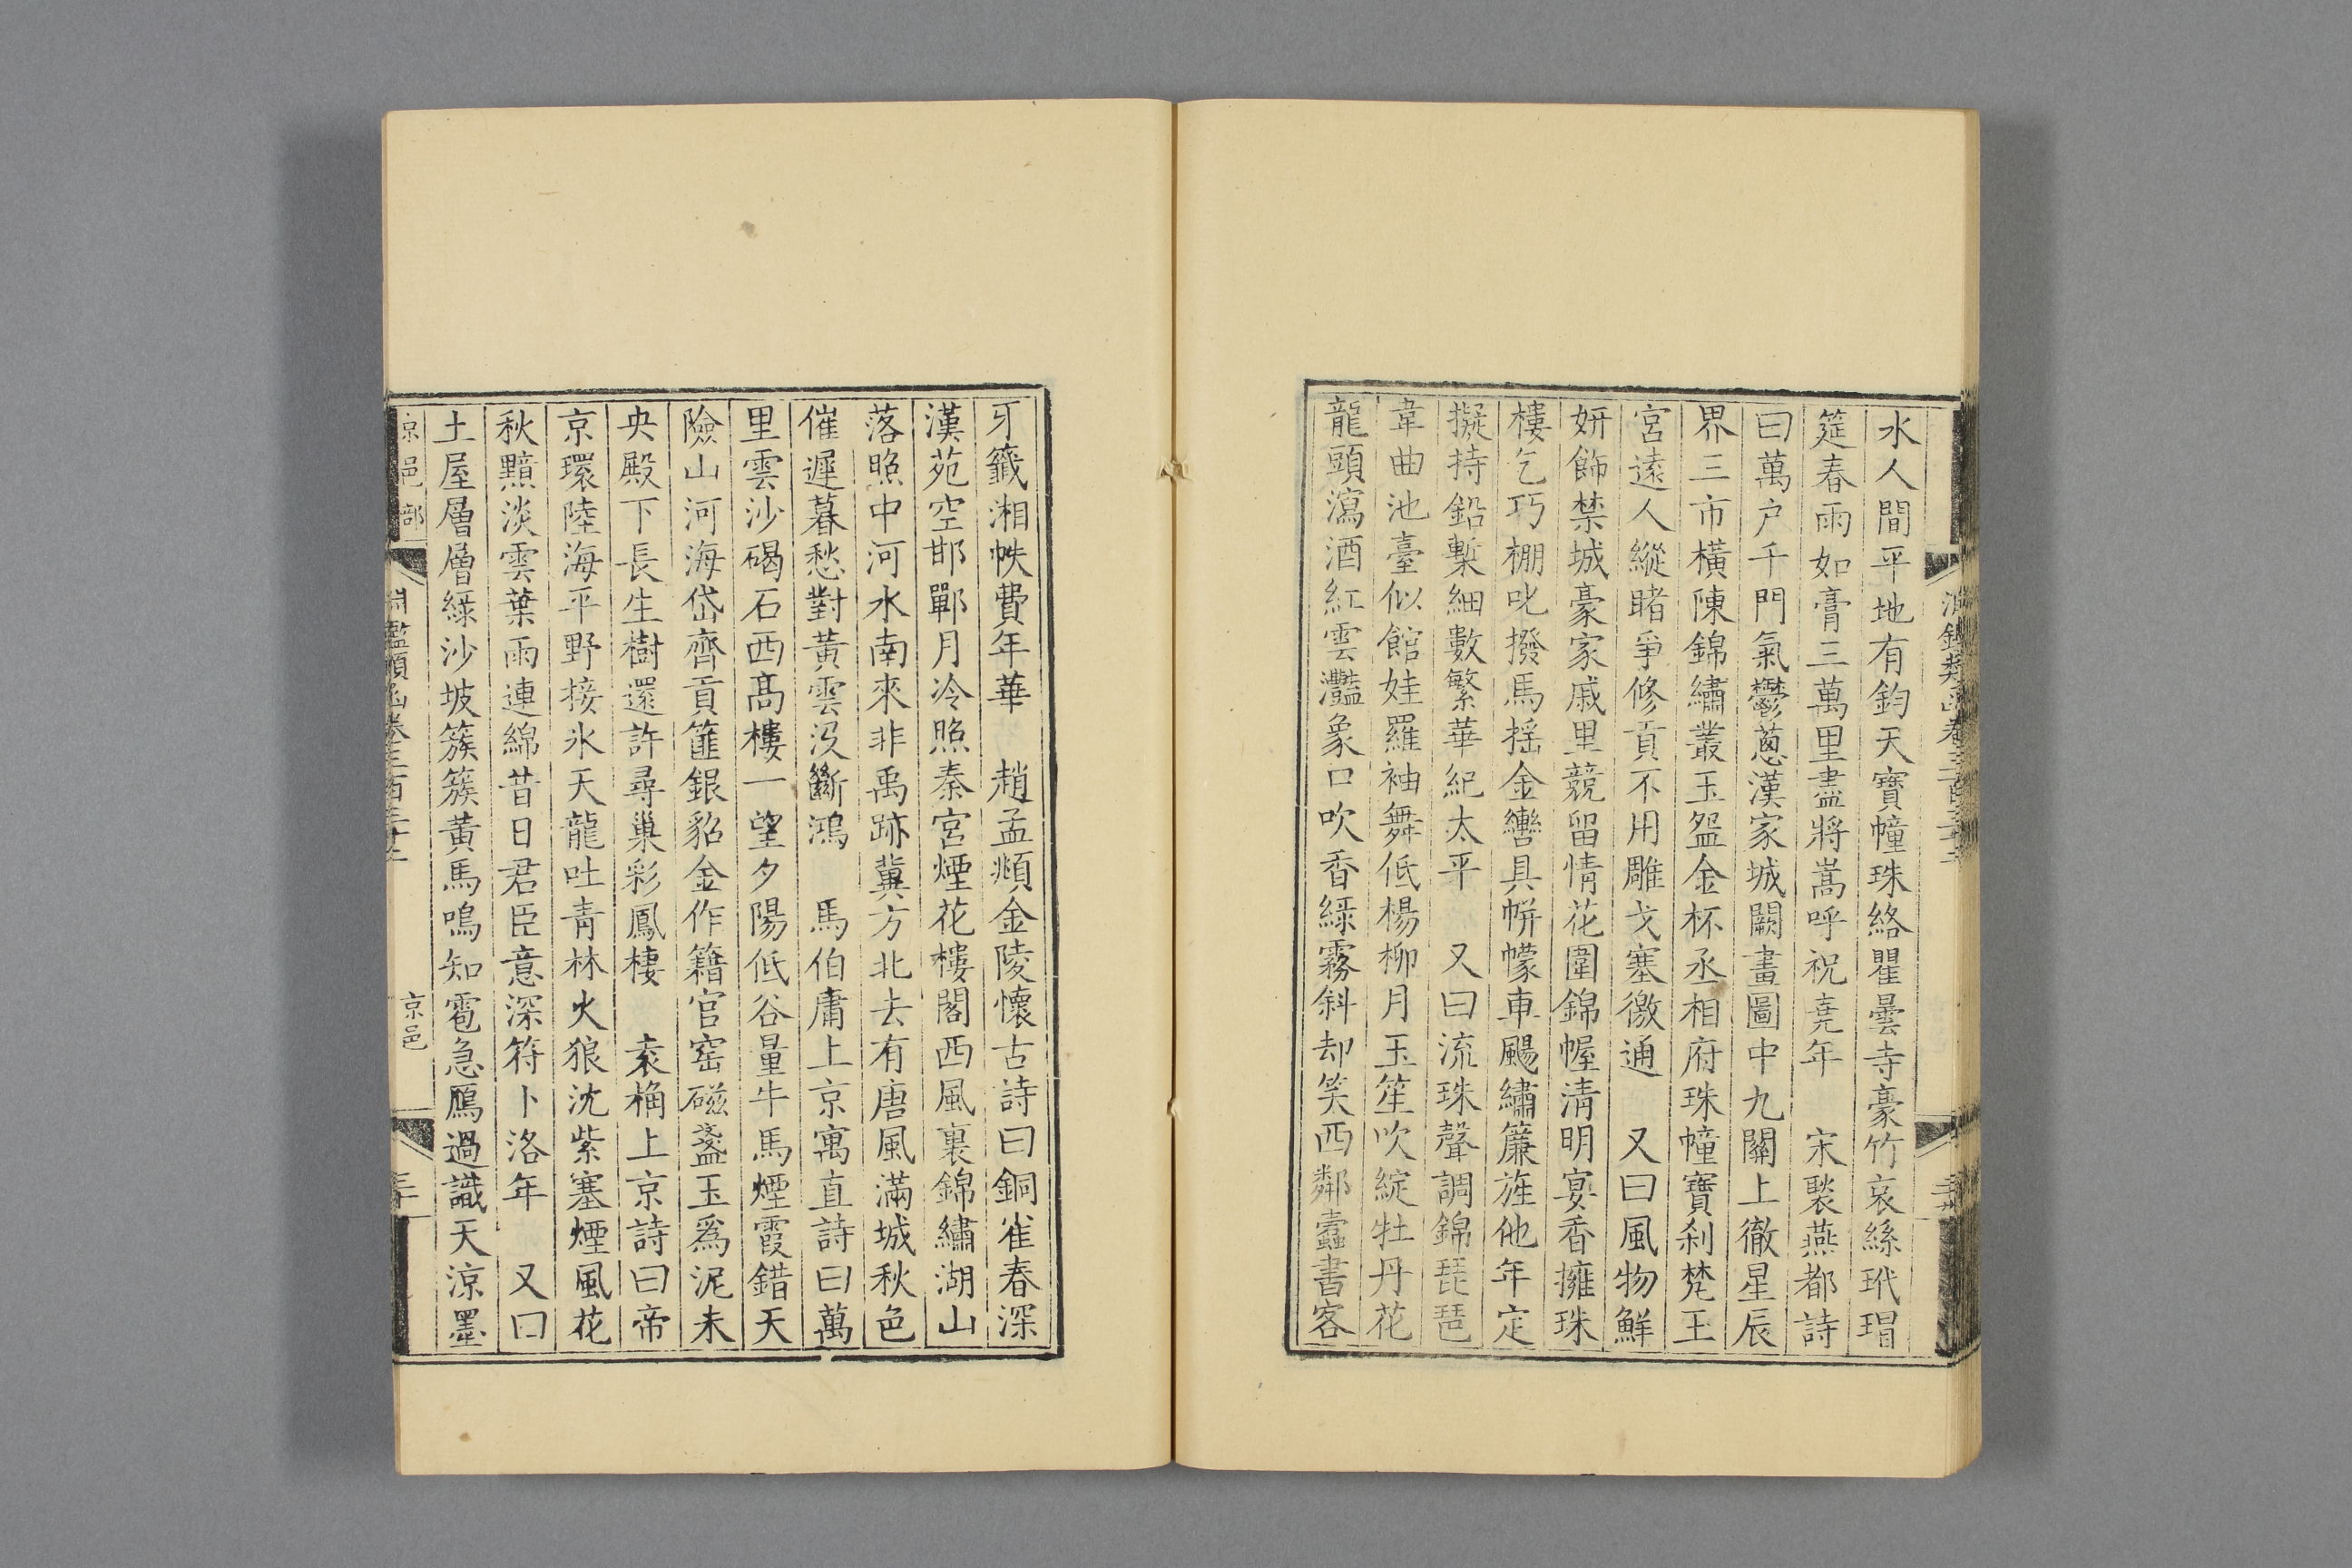 水人間平地有鈞天寶幢珠絡瞿曇寺豪竹哀絲玳瑁
筵春雨如膏三萬里盡將嵩呼祝堯年　宋褧燕都詩
曰萬户千門氣鬱葱漢家城闕畫圖中九關上徹星辰
界三市橫陳錦繡叢玉盌金杯丞相府珠幢寶刹梵王
宮遠人縱睹爭修貢不用雕戈塞徼通　又曰風物鮮
妍飾禁城豪家戚里競留情花圍錦幄淸明宴香擁珠
樓乞巧棚叱撥馬摇金轡具帡幪車颺繡簾旌他年定
擬持鉛槧細數繁華紀太平　又曰流珠聲調錦琵琶
韋曲池臺似館娃羅袖舞低楊柳月玉笙吹綻牡丹花
龍頭瀉酒紅雲灩象口吹香綠霧斜却笑西鄰蠹書客
牙籤湘帙費年華　趙孟頫金陵懷古詩曰銅雀春深
漢苑空邯鄲月冷照秦宮煙花樓閣西風裏錦繡湖山
落照中河水南來非禹跡冀方北去有唐風滿城秋色
催遲暮愁對黃雲没斷鴻　馬伯庸上京寓直詩曰萬
里雲沙碣石西髙樓一望夕陽低谷量牛馬煙霞錯天
險山河海岱齊貢篚銀貂金作籍官窑磁盞玉爲泥未
央殿下長生樹還許尋巢彩鳳棲　袁桷上京詩曰帝
京環陸海平野接氷天龍吐靑林火狼沈紫塞煙風花
秋黯淡雲葉雨連綿昔日君臣意深符卜洛年　又曰
土屋層層綠沙坡簇簇黃馬鳴知雹急鴈過識天涼墨
京邑部
京邑